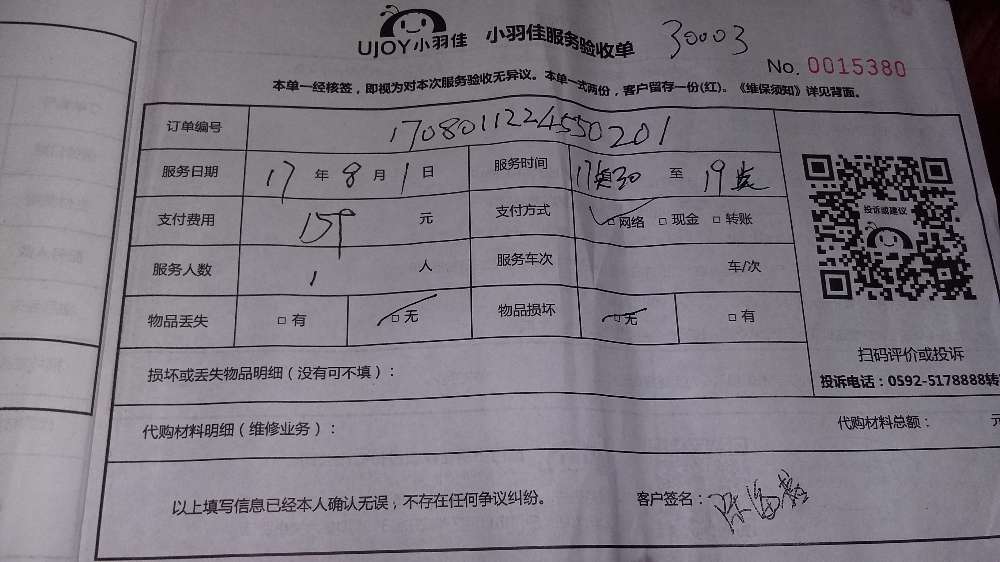 UJOY小羽佳 小羽佳服务验收单 30003
No. 0015380
本单一经核签，即视为对本次服务验收无异议。本单一式两份，客户留存一份(红)。《维保须知》详见背面。
订单编号 1708011224550201
服务日期 17 年 8 月 1 日 服务时间 17 30 至 19
支付费用 159 元 支付方式 □网络 □ 现金 □ 转账
投诉或建议
服务人数 1 人 服务车次 车/次
物品丢失 □ 有 □ 无 物品损坏 □ 无 □ 有
扫码评价或投诉
损坏或丢失物品明细（没有可不填）：
投诉电话：0592-5178888转
代购材料明细（维修业务）： 代购材料总额： 元
以上填写信息已经本人确认无误，不存在任何争议纠纷。 客户签名：